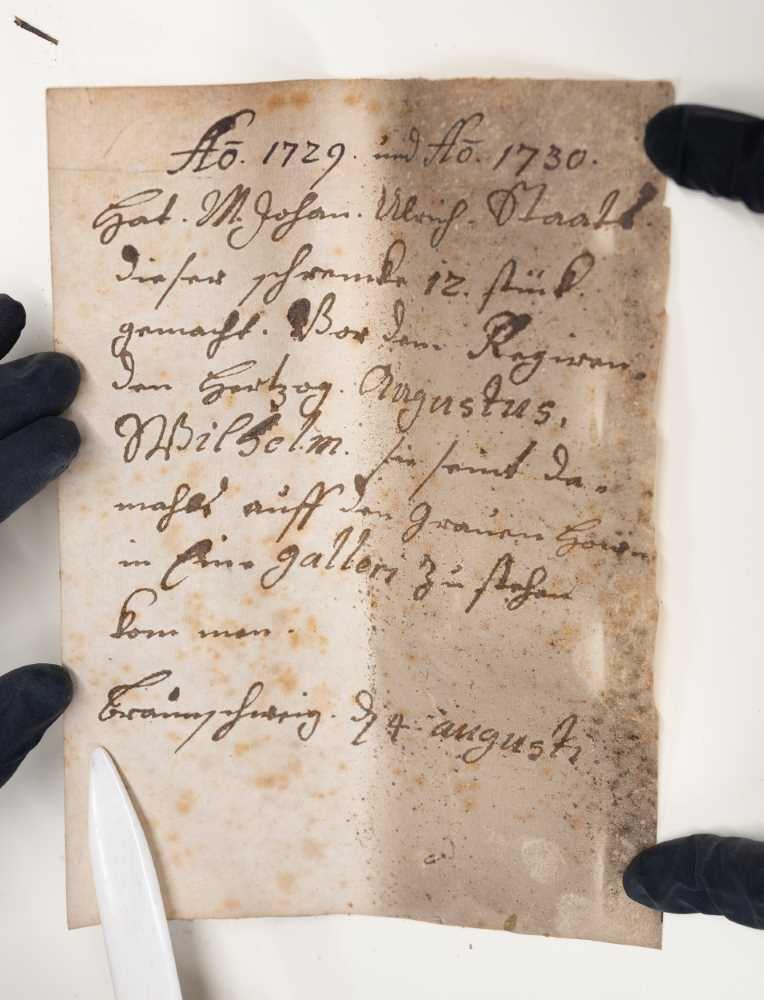 Aō. 1729. und Aō. 1730.
Hat. M. Johan. Ulrich. Staats.
dieser schrencke 12. stück.
gemacht. Vor dem Regiren,
den Hertzog. Augustus,
Wilhelm. sie seint da-
mahls auff den grauen Hoffe
in Eine gallerj zu stehen
kom men.
Braunschweig. d 4 augusti